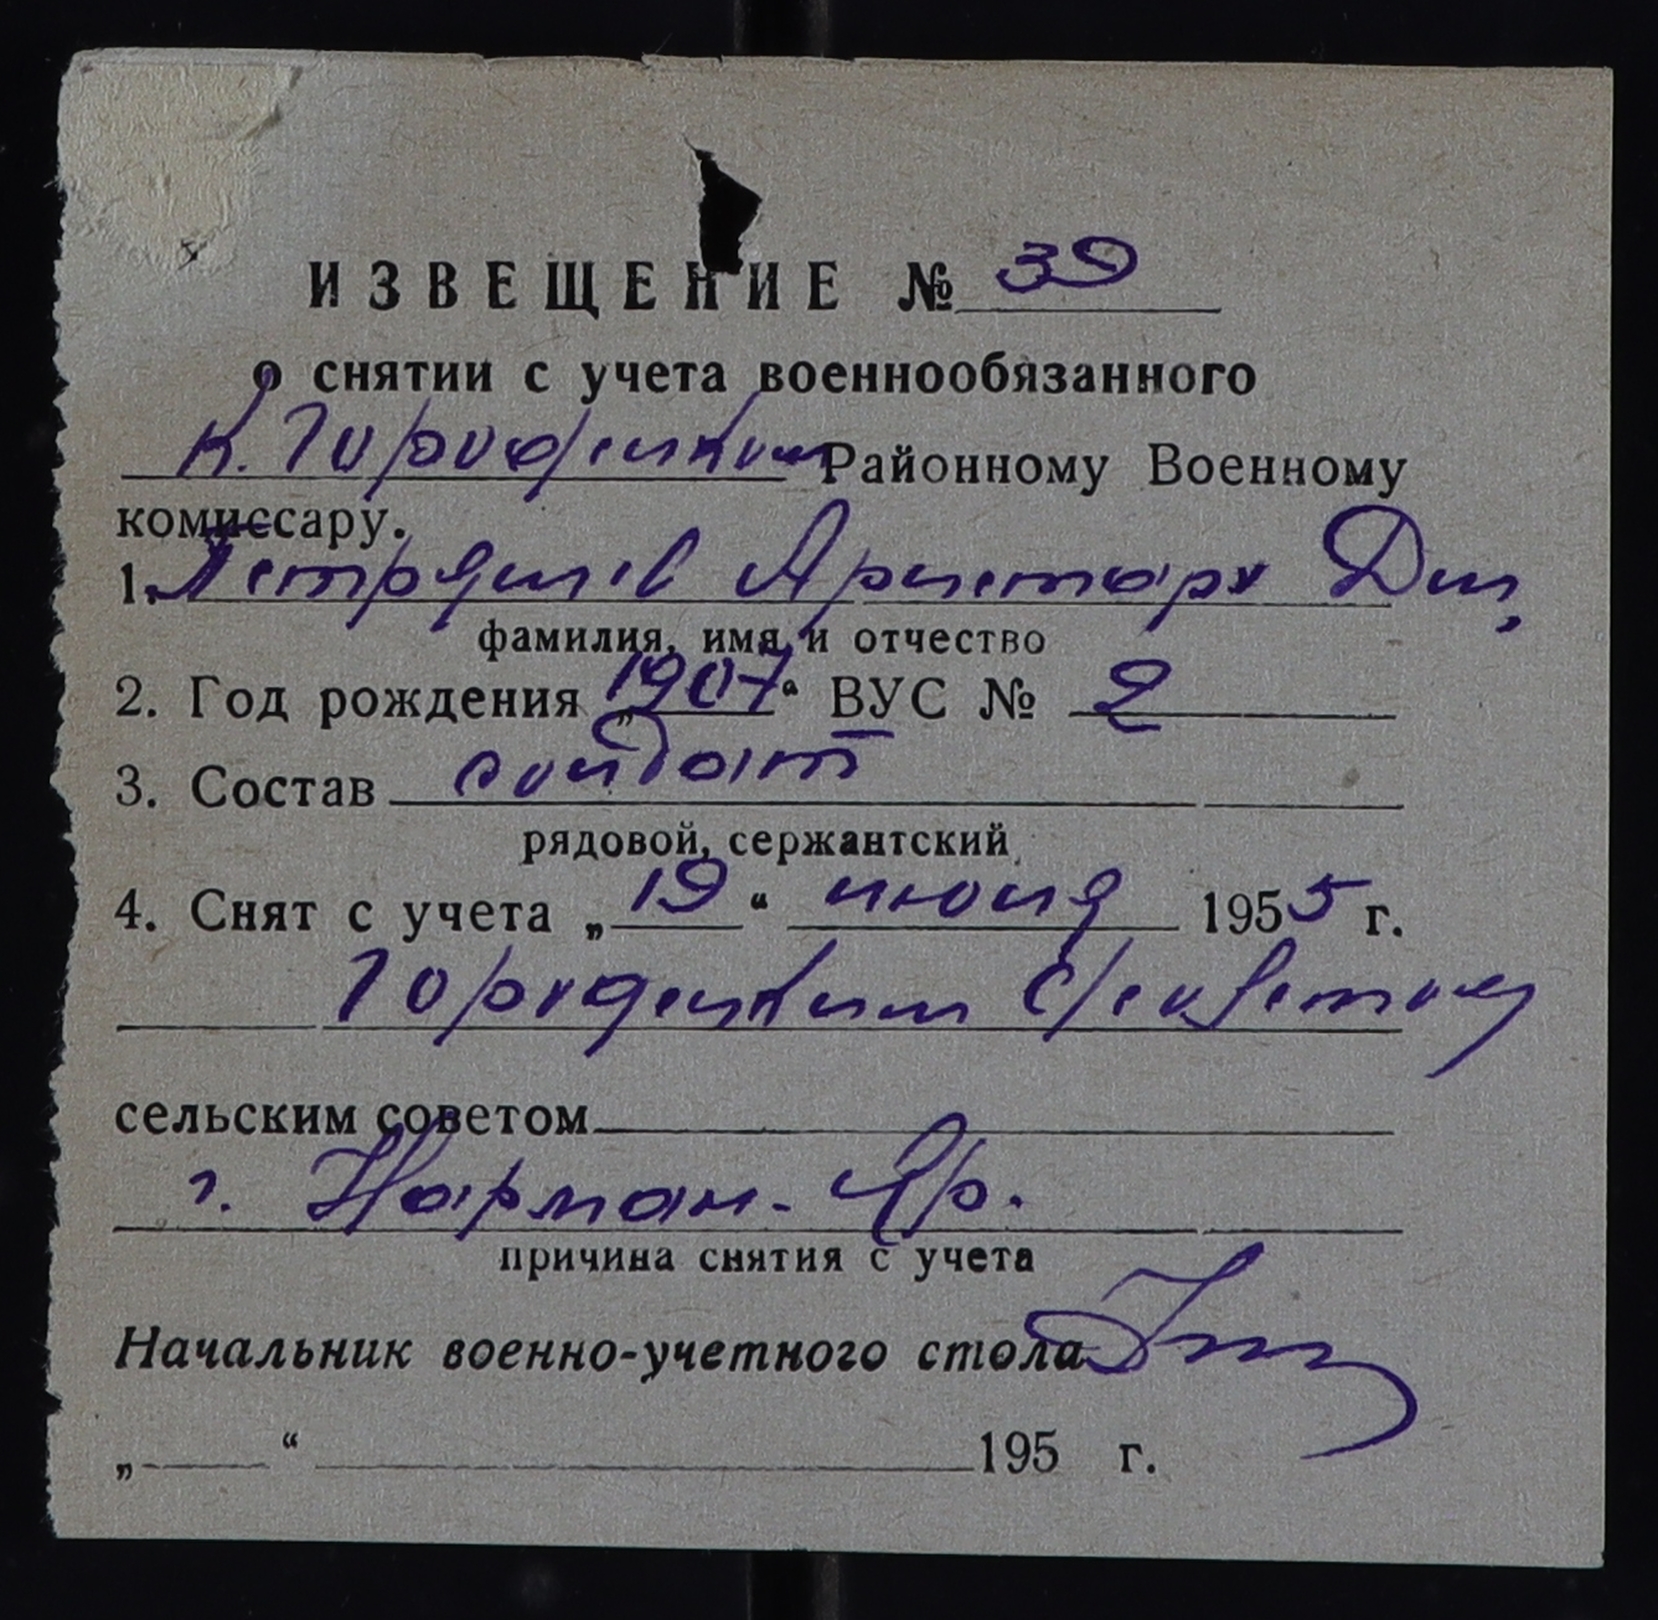 ИЗВЕЩЕНИЕ № 39
о снятии с учета военнообязанного
К. Городецким Районному Военному
комиссару.
1. Аристарх
фамилия, имя и отчество
2. Год рождения „1907“ ВУС № 2
3. Состав солдат
рядовой, сержантский
4. Снят с учета „19“ июля 1955 г.
Городецким с/советом
сельским советом
г. Нарьян-
причина снятия с учета
Начальник военно-учетного стола
„ “ 195 г.